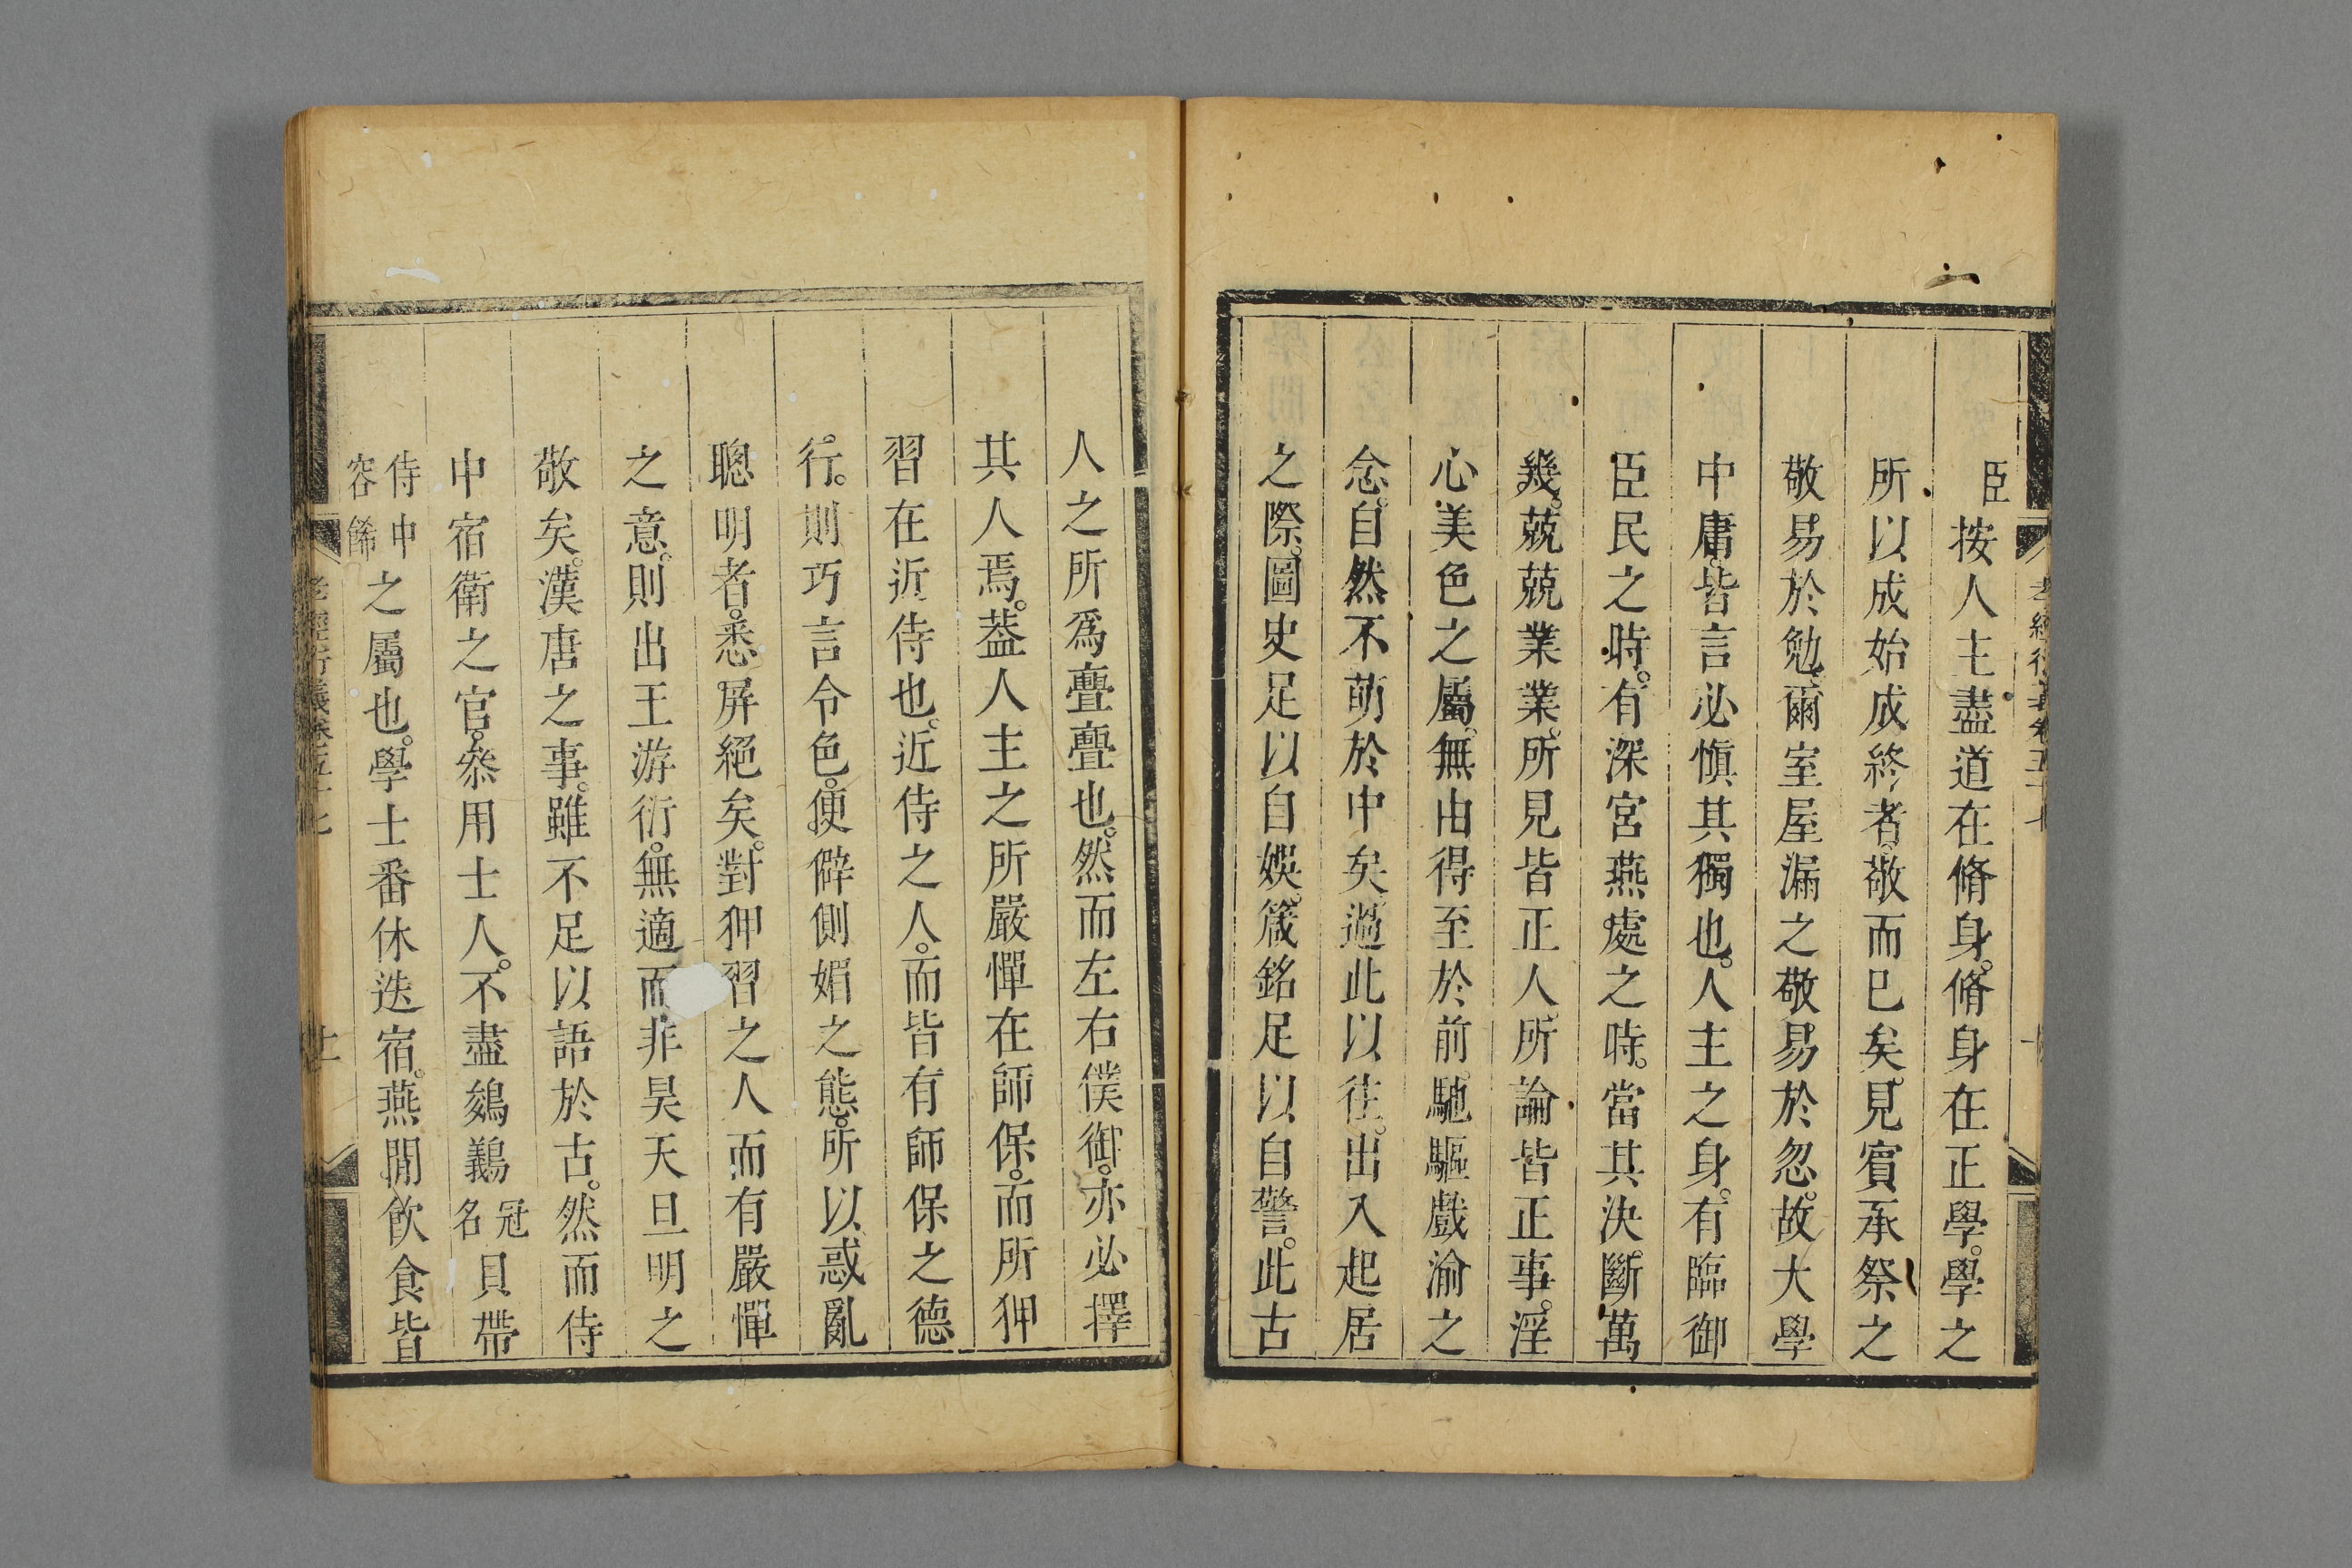 臣按人主盡道在脩身。脩身在正學。學之
所以成始成終者。敬而已矣。見賓承祭之
敬易於勉。爾室屋漏之敬易於忽。故大學
中庸。皆言必愼其獨也。人主之身。有臨御
臣民之時。有深宮燕處之時。當其決斷萬
幾。兢兢業業。所見皆正人。所論皆正事。淫
心美色之屬。無由得至於前。馳驅戲渝之
念。自然不萌於中矣。過此以往。出入起居
之際。圖史足以自娛。箴銘足以自警。此古
人之所爲亹亹也。然而左右僕御。亦必擇
其人焉。葢人主之所嚴憚在師保。而所狎
習在近侍也。近侍之人。而皆有師保之德
行。則巧言令色。便僻側媚之態。所以惑亂
聰明者。悉屏絕矣。對狎習之人而有嚴憚
之意。則出王游衍。無適而非昊天旦明之
敬矣。漢唐之事。雖不足以語於古。然而侍
中宿衛之官。叅用士人。不盡鵕鸃冠名貝帶
侍中容飾之屬也。學士番休迭宿。燕閒飲食皆
孝經衍義卷五十七